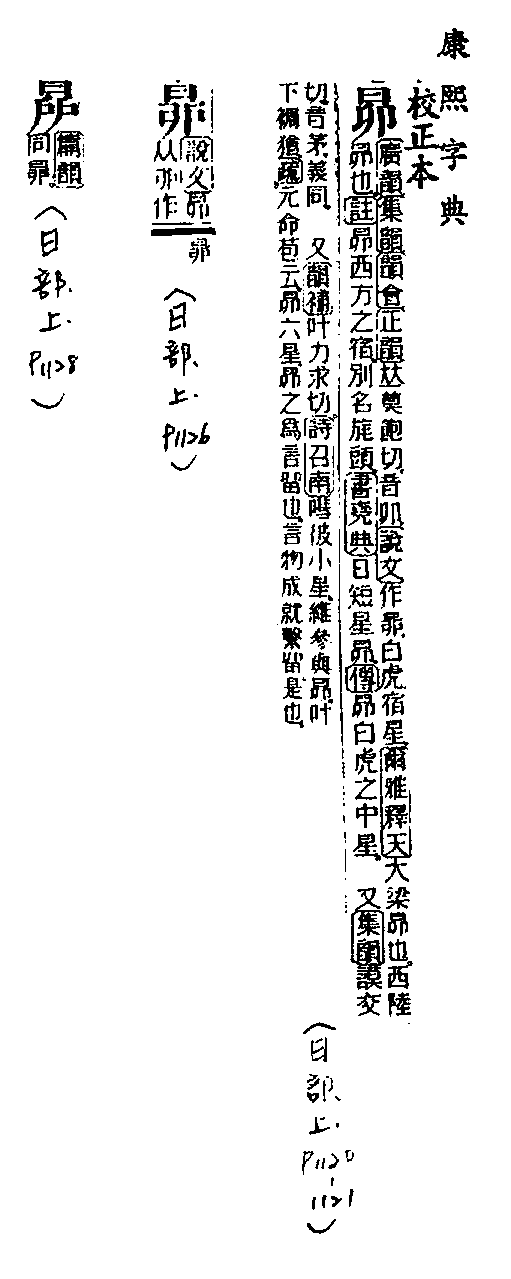 康熙字典
校正本
昴
廣韻集韻韻會正韻𠀤莫飽切音卯說文作昴白虎宿星爾雅釋天大梁昴也西陸
昴也註昴西方之宿別名旄頭書堯典日短星昴傳昴白虎之中星 又集韻謨交
切音茅義同 又韻補叶力求切詩召南嘒彼小星維參與昴叶
下裯猶疏元命苞云昴六星昴之爲言留也言物成就繫留是也
(日部上.P1120、1121)
昴
說文昴
从丣作
昴
(日部.上.P1126)
篇韻
同昴
(日部.上.P1128)